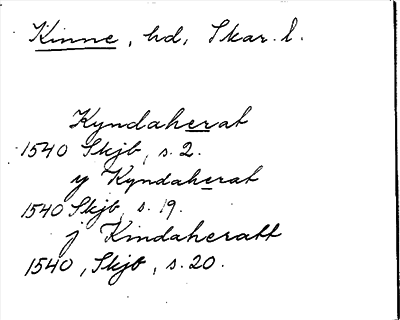 Kinne, hd, Skar. l.
Kyndaherat
1540 Skjb, s. 2.
y Kyndaherat
1540 Skjb, s. 19.
j Kindaheratt
1540, Skjb, s. 20.